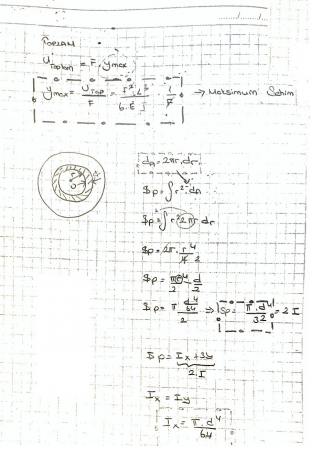 TOPLAM
U_toplam = F. y_max
y_max = U_Top / F = F². L³ / 6.E I . 1/F → Maksimum Sehim
d_A = 2πr. dr
Sp = ∫ r². dA
Sp = ∫ r² 2πr dr
Sp = 2π. r⁴ / 4 2
Sp = πr⁴ / 2 d/2
Sp = π d⁴/64 / 2 ⇒ Sp = π. d⁴ / 32 = 2 I
Sp = Ix + Iy
2.I
Ix = Iy
Ix = π. d⁴ / 64